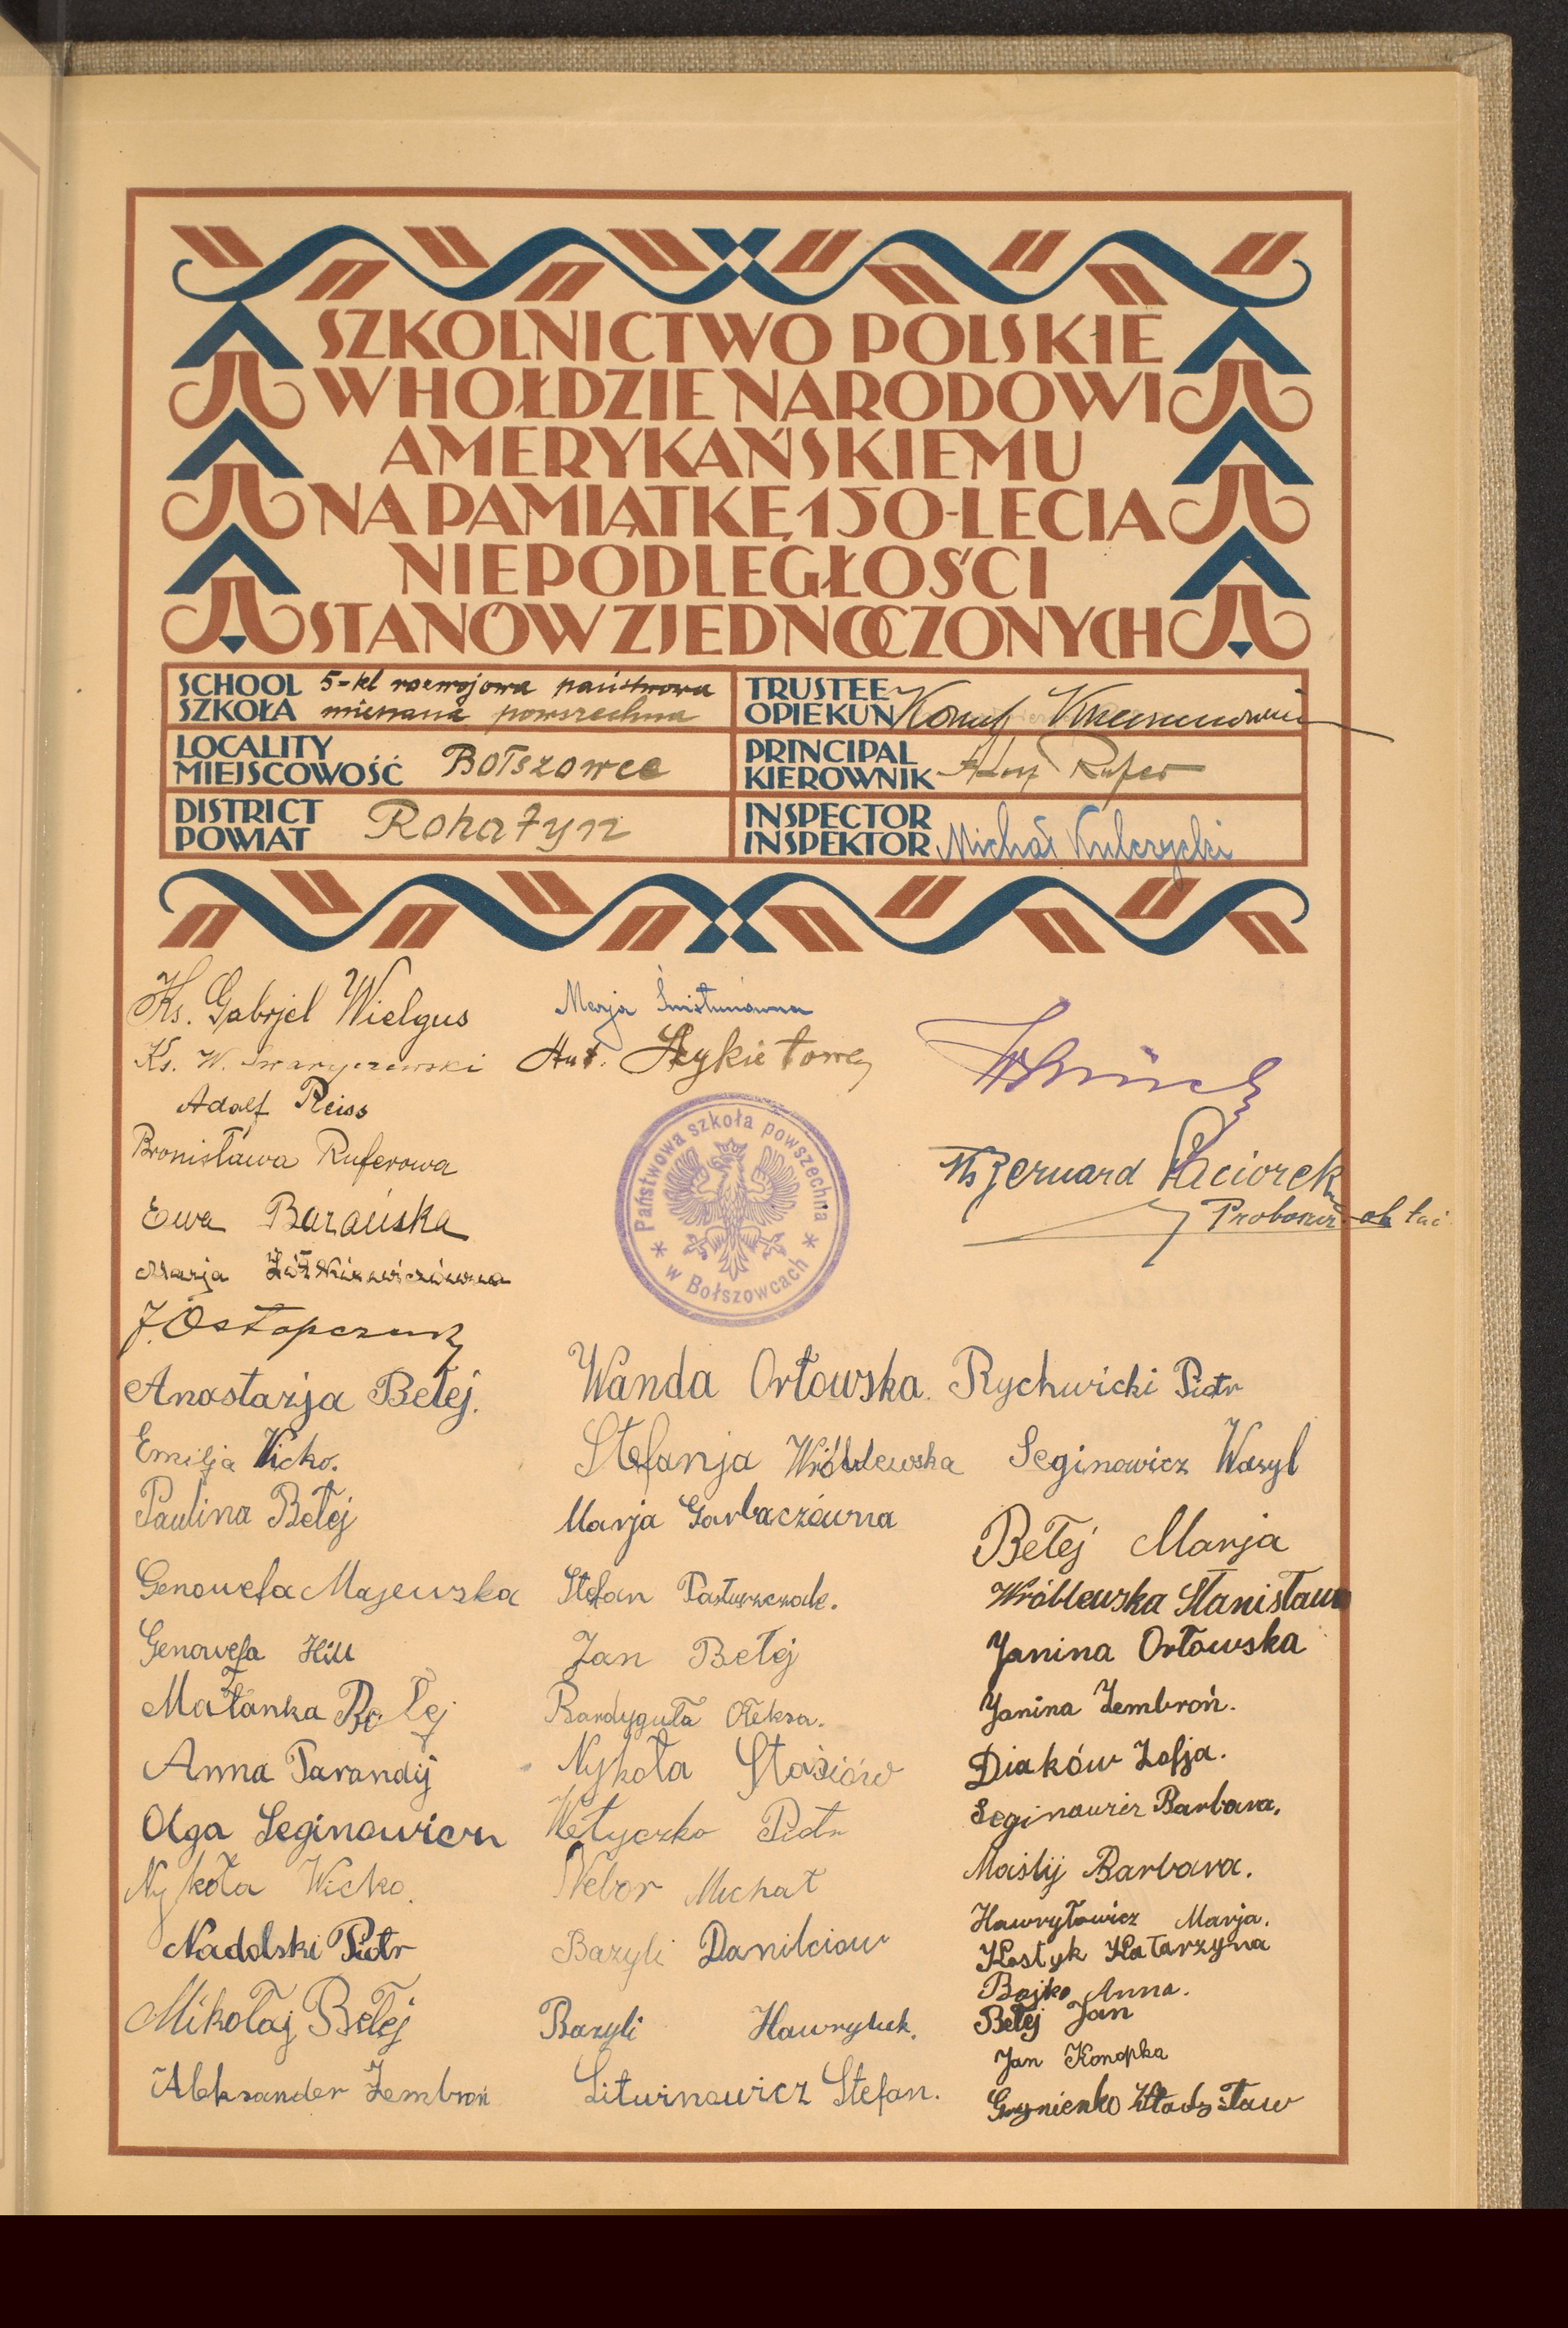 SZKOLNICTWO POLSKIE
W HOŁDZIE NARODOWI
AMERYKAŃSKIEMU
NA PAMIĄTKĘ 150-LECIA
NIEPODLEGŁOŚCI
STANÓW ZJEDNOCZONYCH
SCHOOL 5-kl rozwojowa państwowa
SZKOŁA mieszana powszechna
TRUSTEE
OPIEKUN
LOCALITY
MIEJSCOWOŚĆ Bołszowce
PRINCIPAL
KIEROWNIK Rufer
DISTRICT
POWIAT Rohatyn
INSPECTOR
INSPEKTOR Michał Kulczycki
Ks. Gabrjel Wielgus
Ks. W. Swaryczewski
Adolf Reiss
Bronisława Ruferowa
Ewa Barańska
Marja Żółkiewiczówna
J. Ostapczuk
Anastazja Bełej.
Emilja Wicko.
Paulina Bełej
Genowefa Majewska
Genowefa Hill
Małanka Bełej
Anna Parandij
Olga Seginowicz
Nykoła Wicko.
Nadolski Piotr
Mikołaj Bełej
Aleksander Zembroń
Marja
Ant.
Państwowa szkoła powszechna
* w Bołszowcach *
Wanda Orłowska.
Stefanja Wróblewska
Marja Garbaczówna
Stefan Pastuszczak.
Jan Bełej
Bardyguła Ołeksa.
Nykoła Stasiów
Wełyczko Piotr
Webor Michał
Bazyli Danilciow
Bazyli Hawryluk.
Litwinowicz Stefan.
Bernard Paciorek
Rychwicki Piotr
Seginowicz Wasyl
Bełej Marja
Wróblewska Stanisława
Janina Orłowska
Janina Zembroń.
Diaków Zofja.
Seginowicz Barbara.
Maslij Barbara.
Hawryłowicz Marja.
Kostyk Katarzyna
Bojko Anna.
Bełej Jan
Jan Konopka
Grynienko Władysław